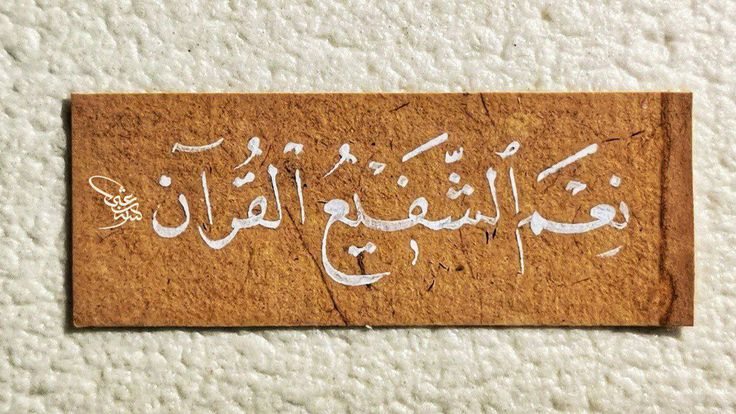 نِعْمَ ٱلشَّفِيْعُ ٱلْقُرْآن